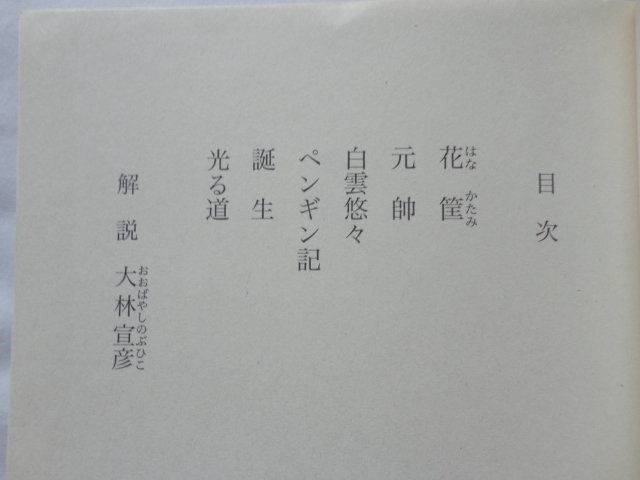 目次
花筐
はな かたみ
元帥
白雲悠々
ペンギン記
誕生
光る道
解説 大林宣彦
おおばやしのぶひこ